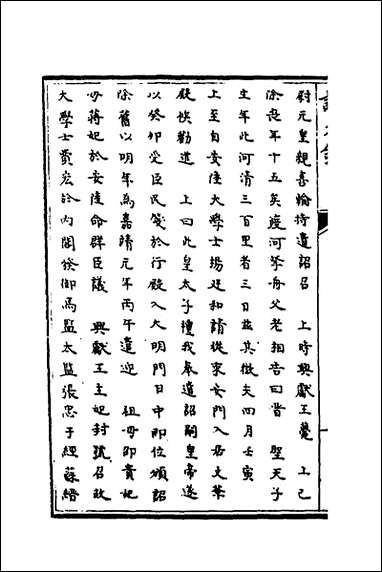 尉元皇親喜輪持遺詔召　上時興獻王薨　上已
除喪年十五矣渡河拏舟父老相告曰昔　聖天子
生年此河清三百里者三日茲其徵夫四月壬寅
上至自安陸大學士楊廷和請從東安門入居文華
殿俟勸進　上曰此皇太子禮我奉遺詔嗣皇帝遂
以癸卯受臣民箋於行殿入大明門日中即位頒詔
除舊以明年為嘉靖元年丙午遣迎　祖母邵貴妃
母蔣妃於安陸命群臣議　興獻王主妃封號召故
大學士費宏於內閣俟御馬監太監張忠于經蘇縉